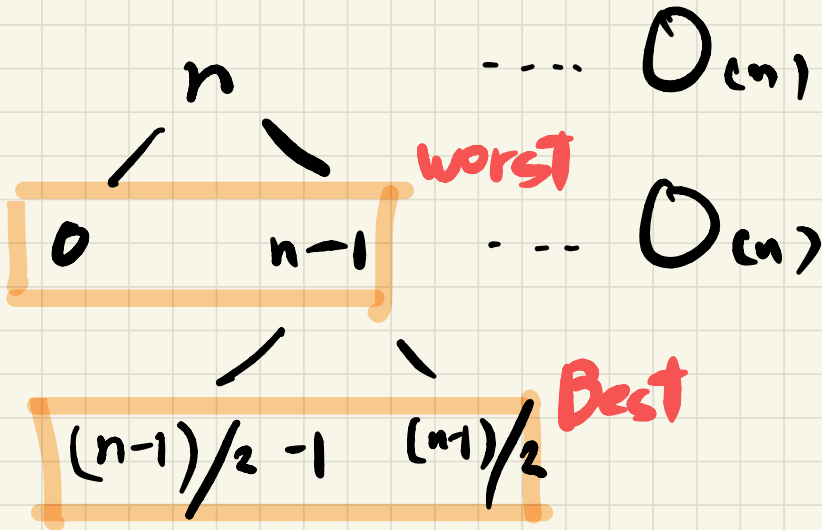 n ---- O(n)
worst
0 n-1 ---- O(n)
Best
(n-1)/2 -1 (n-1)/2